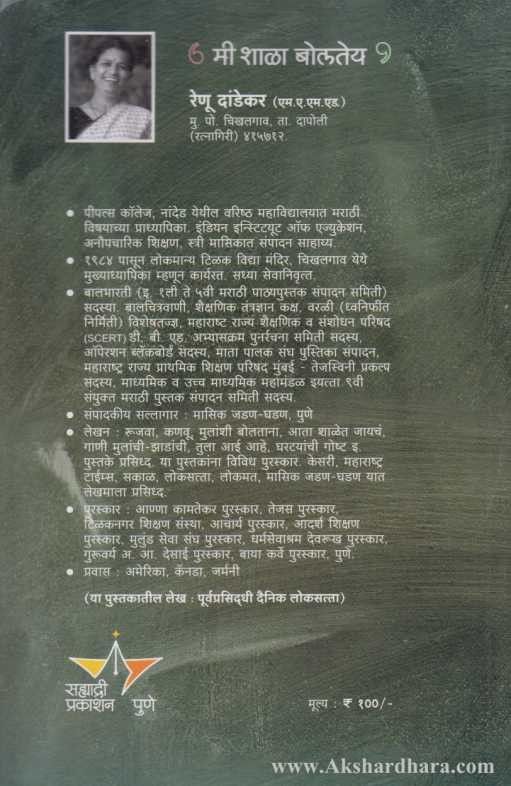 मी शाळा बोलतेय
रेणू दांडेकर (एम.ए.एम.एड.)
मु. पो. चिखलगाव, ता. दापोली
(रत्नागिरी) ४१५७१२.
• पीपल्स कॉलेज, नांदेड येथील वरिष्ठ महाविद्यालयात मराठी
विषयाच्या प्राध्यापिका. इंडियन इन्स्टिटयूट ऑफ एज्युकेशन,
अनौपचारिक शिक्षण, स्त्री मासिकात संपादन साहाय्य.
• १९८४ पासून लोकमान्य टिळक विद्या मंदिर, चिखलगाव येथे
मुख्याध्यापिका म्हणून कार्यरत. सध्या सेवानिवृत्त.
• बालभारती (इ. १ली ते ५वी मराठी पाठ्यपुस्तक संपादन समिती)
सदस्या. बालचित्रवाणी, शैक्षणिक तंत्रज्ञान कक्ष, वरळी (ध्वनिफीत
निर्मिती) विशेषतज्ज्ञ, महाराष्ट राज्य शैक्षणिक व संशोधन परिषद
(SCERT) डी. बी. एड. अभ्यासक्रम पुनर्रचना समिती सदस्य,
ऑपरेशन ब्लॅकबोर्ड सदस्य, माता पालक संघ पुस्तिका संपादन,
महाराष्ट्र राज्य प्राथमिक शिक्षण परिषद मुंबई - तेजस्विनी प्रकल्प
सदस्य, माध्यमिक व उच्च माध्यमिक महामंडळ इयत्ता ९वी
संयुक्त मराठी पुस्तक संपादन समिती सदस्य.
• संपादकीय सल्लागार : मासिक जडण-घडण, पुणे
• लेखन : रूजवा, कणवू, मुलांशी बोलताना, आता शाळेत जायचं,
गाणी मुलांची-झाडांची, तुला आई आहे, घरट्यांची गोष्ट इ.
पुस्तके प्रसिध्द. या पुस्तकांना विविध पुरस्कार. केसरी, महाराष्ट्र
टाईम्स, सकाळ, लोकसत्ता, लोकमत, मासिक जडण-घडण यात
लेखमाला प्रसिध्द.
• पुरस्कार : आण्णा कामतेकर पुरस्कार, तेजस पुरस्कार,
टिळकनगर शिक्षण संस्था, आचार्य पुरस्कार, आदर्श शिक्षण
पुरस्कार, मुलुंड सेवा संघ पुरस्कार, धर्मसेवाश्रम देवरूख पुरस्कार,
गुरूवर्य अ. आ. देसाई पुरस्कार, बाया कर्वे पुरस्कार, पुणे.
• प्रवास : अमेरिका, कॅनडा, जर्मनी
(या पुस्तकातील लेख : पूर्वप्रसिद्धी दैनिक लोकसत्ता)
सह्याद्री
प्रकाशन पुणे
मूल्य : ₹ १००/-
www.Akshardhara.com